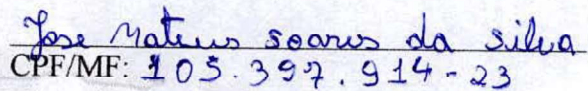 Jose Mateus soares da silva
CPF/MF: 105.397.914-23